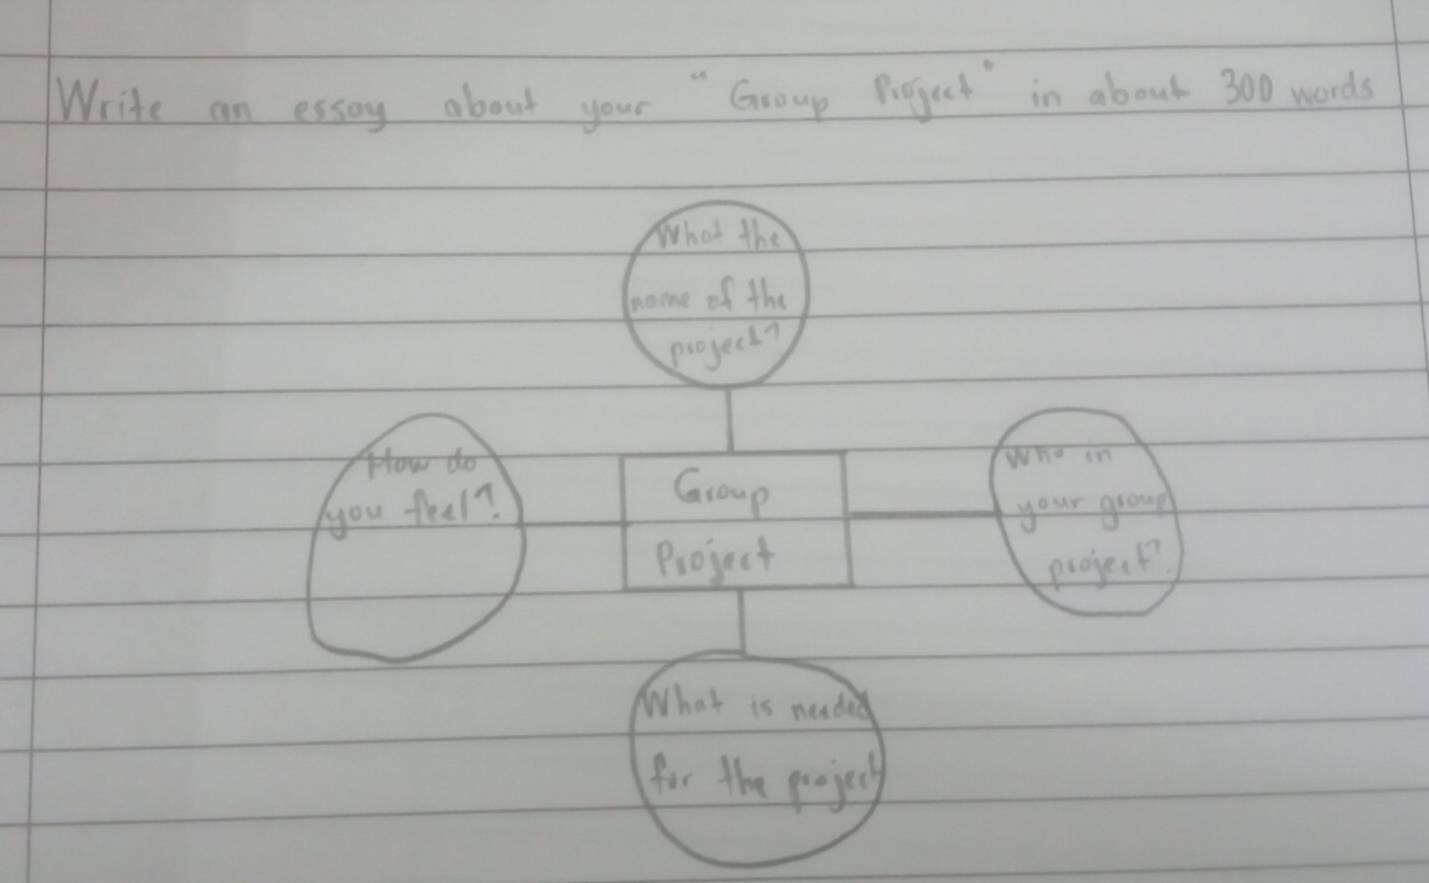 Write an essay about your "Group Project" in about 300 words
What the
name of the
project?
How do
you feel?
Group
Project
Who in
your group
project?
What is needed
for the project